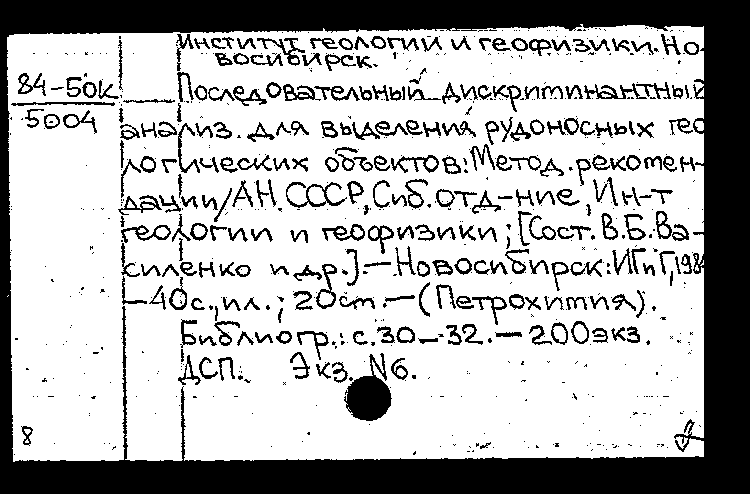 Институт геологии и геофизики. Но-
восибирск.
84-50к
5004
Последовательный дискриминантный
анализ для выделения рудоносных гео
логических объектов: Метод. рекомен-
дации/АН СССР, Сиб. отд-ние, Ин-т
геологии и геофизики; [Сост. В.Б.Ва-
силенко и др.].—Новосибирск: ИГиГ, 198
—40с., ил.; 20см.—(Петрохимия).
Библиогр.: с.30—32.—200экз.
ДСП. Экз. N6.
8